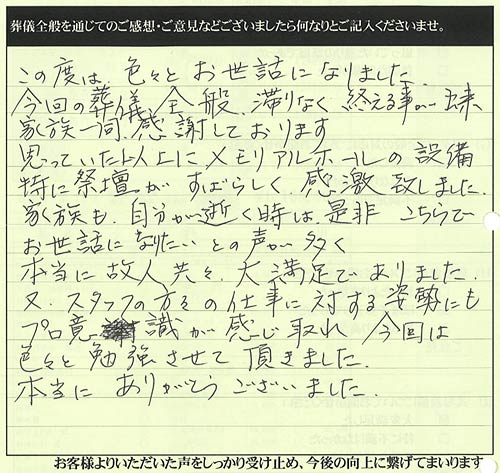 葬儀全般を通じてのご感想・ご意見などございましたら何なりとご記入くださいませ。
この度は、色々とお世話になりました。
今回の葬儀、全般、滞りなく終える事が出来
家族一同、感謝しております
思っていた以上にメモリアルホールの設備
特に祭壇がすばらしく、感激致しました。
家族も、自分が逝く時は、是非こちらで
お世話になりたいとの声が多く
本当に故人共々、大満足でありました。
又、スタッフの方々の仕事に対する姿勢にも
プロ意識が感じ取れ、今回は
色々と勉強させて頂きました。
本当にありがとうございました。
お客様よりいただいた声をしっかり受け止め、今後の向上に繋げてまいります